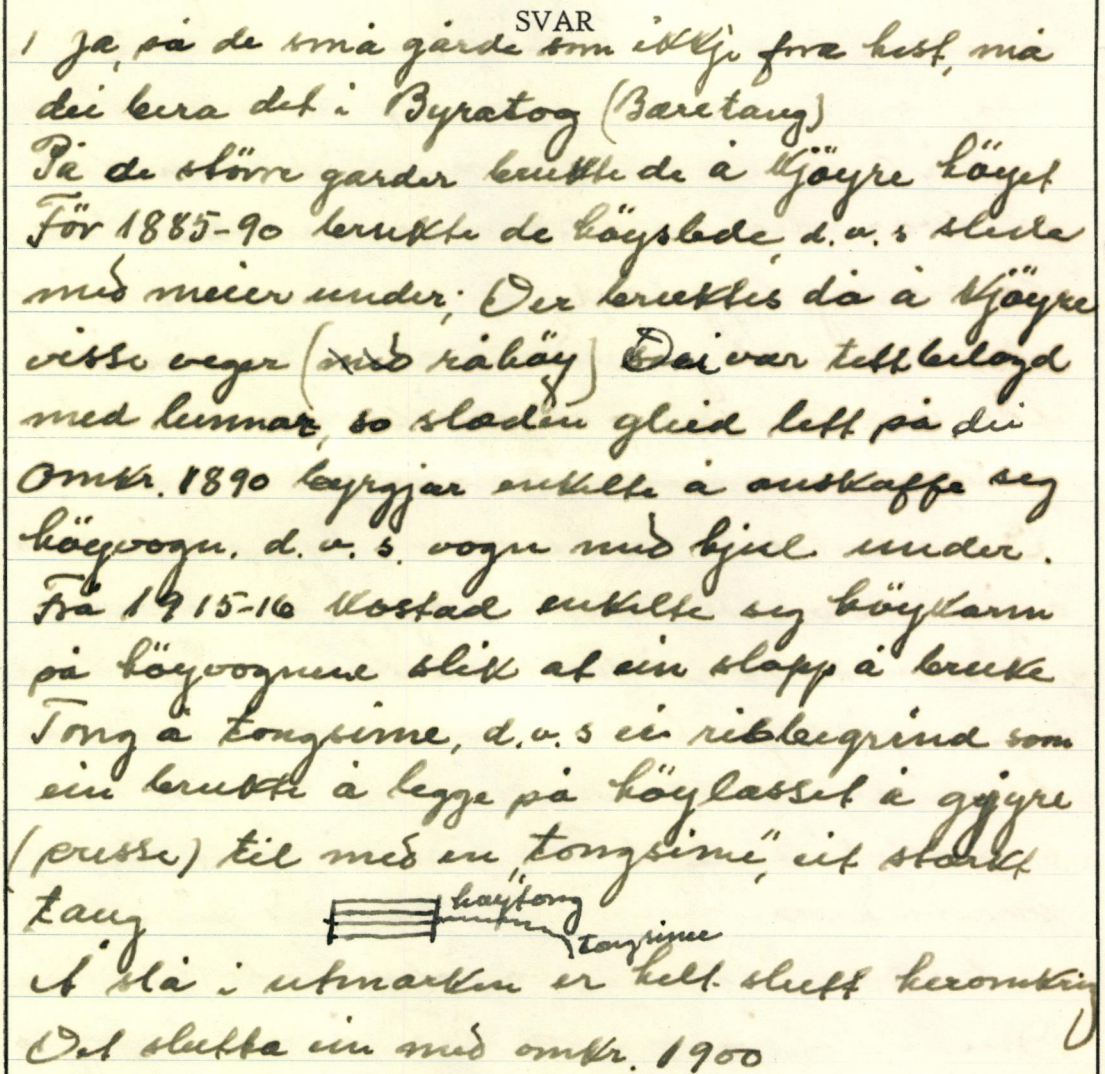 SVAR
1 Ja, på de små gårde som ikkje fora hest, må
dei bera det i Byratog (Bæretaug)
På de större garder brukte de å kjöyre höyet
För 1885-90 brukte de höyslede, d.v.s sleda
med meier under; Der bruktes då å kjöyre
visse veger (med råhöy) Dei var tettbelagd
med lunnar, so slæden gleid lett på dei
Omkr. 1890 byrgjar enkelte å anskaffe seg
höyvogn. d.v.s. vogn med hjul under.
Frå 1915-16 kostad enkelte seg höykarm
på höyvognene slik at ein slapp å bruke
Tong å tongsime, d.v.s ei ribbegrind som
ein brukte å legge på höylasset å gjyre
(presse) til med en "tongsime", eit sterkt
taug
höytong
tongsime
Å slå i utmarken er helt slutt heromkring
Det slutta ein med omkr. 1900